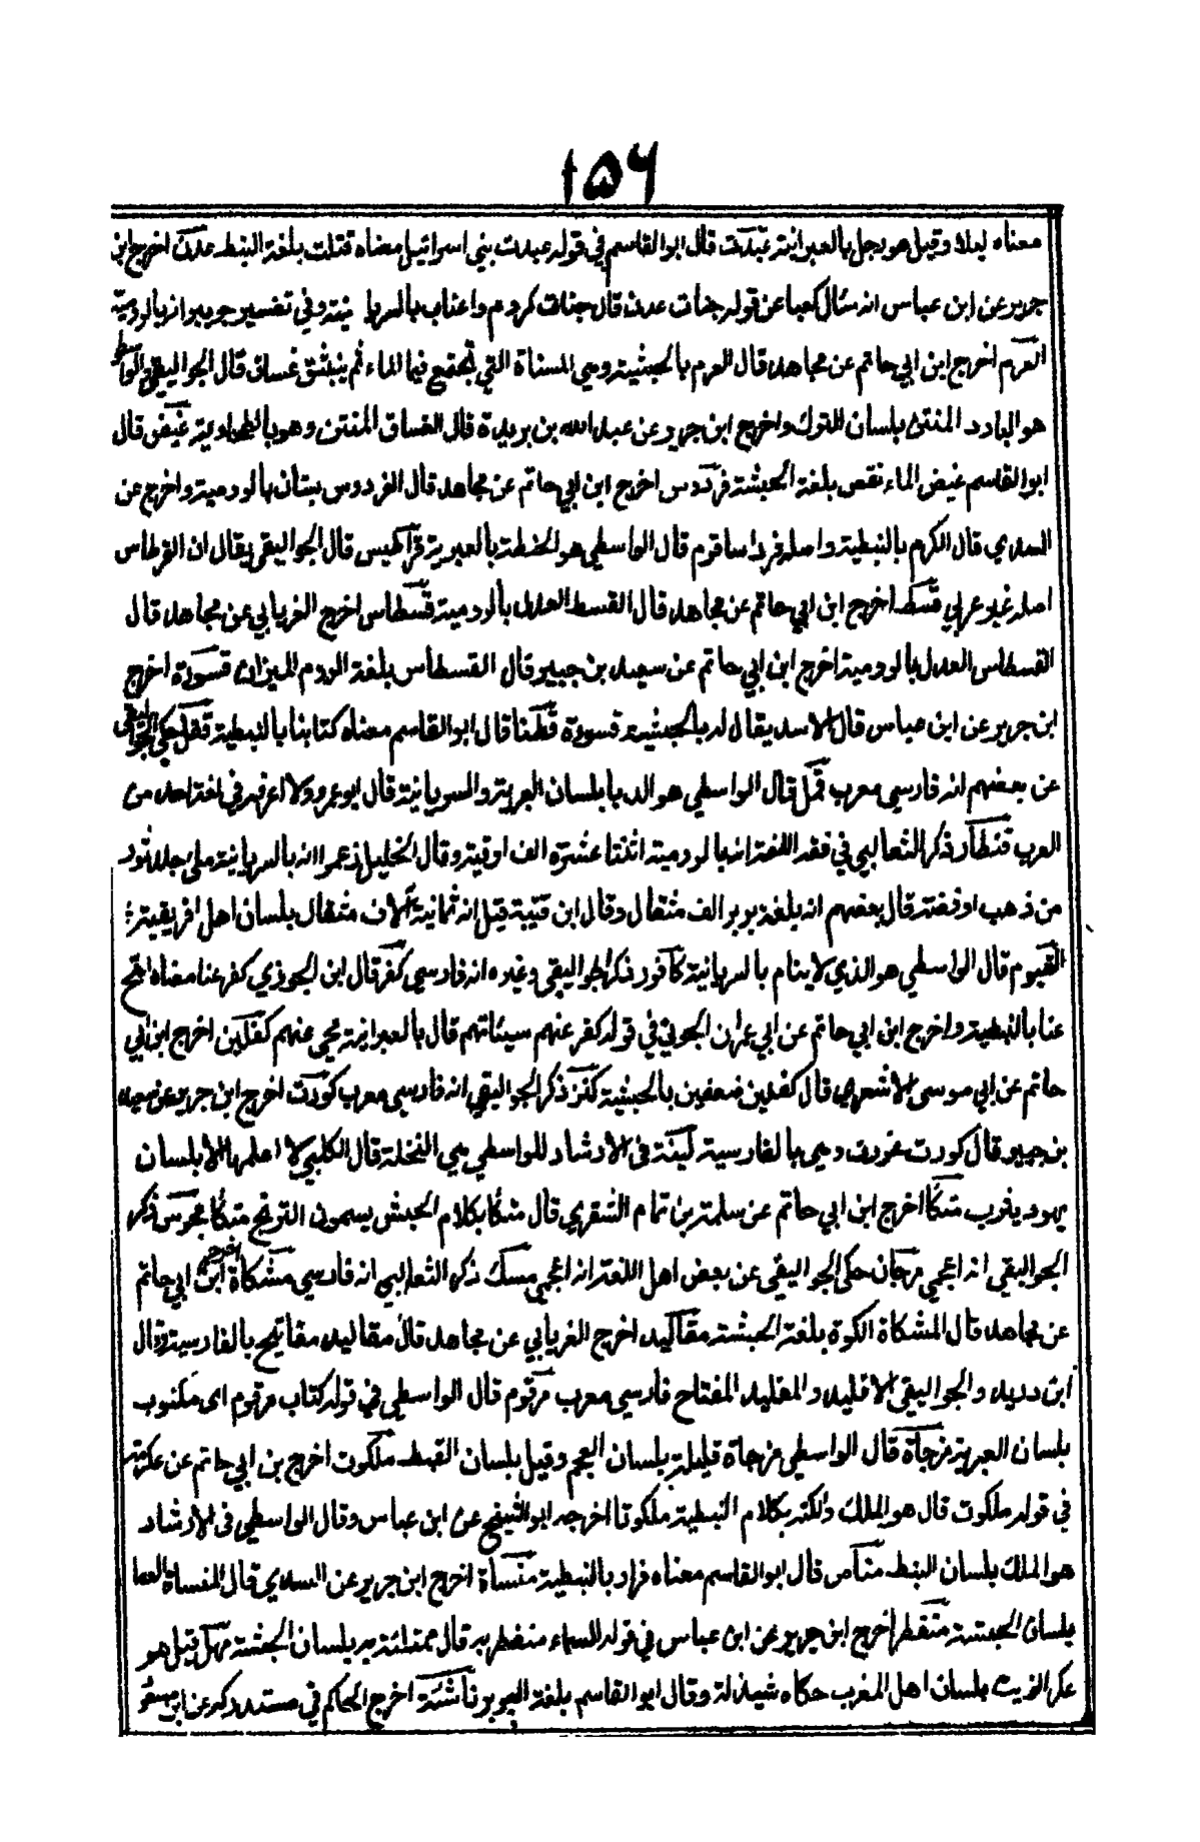 ١٥٦
معناه ليلا وقيل هو رجل بالعبرانية عبّدت قال ابو القاسم في قوله عبدت بني اسرائيل معناه قتلت بلغة النبط عدن اخرج ابن
جرير عن ابن عباس انه سئال كعبا عن قوله جنات عدن قال جنات كروم واعناب بالسريانية وفي تفسير جويبر انه بالرومية
العرم اخرج ابن ابي حاتم عن مجاهد قال العرم بالحبشية وهي المسناة التي تجتمع فيها الماء ثم ينبثق غساق قال الجواليقي والواسطي
هو البارد المنتن بلسان الترك واخرج ابن جرير عن عبد الله بن بريدة قال الغساق المنتن وهو بالطحاوية غيض قال
ابو القاسم غيض الماء نقص بلغة الحبشة فردوس اخرج ابن ابي حاتم عن مجاهد قال الفردوس بستان بالرومية واخرج عن
السدي قال الكرم بالنبطية واصله فرداسا قوم قال الواسطي هو الحنطة بالعبرية قراطيس قال الجواليقي يقال ان القرطاس
اصله غير عربي قسط اخرج ابن ابي حاتم عن مجاهد قال القسط العدل بالرومية قسطاس اخرج الفريابي عن مجاهد قال
القسطاس العدل بالرومية اخرج ابن ابي حاتم عن سعيد بن جبير قال القسطاس بلغة الروم الميزان قسورة اخرج
ابن جرير عن ابن عباس قال الاسد يقال له بالحبشية قسورة قطنا قال ابو القاسم معناه كتابنا بالنبطية قفل حكى الجواليقي
عن بعضهم انه فارسي معرب قمل قال الواسطي هو الدبا بلسان العبرية والسريانية قال ابو عمرو ولا اعرفه في لغة احد من
العرب قنطار ذكر الثعالبي في فقه اللغة انه بالرومية اثنتا عشرة الف اوقية وقال الخليل زعموا انه بالسريانية ملئ جلد ثور
من ذهب او فضة قال بعضهم انه بلغة بربر الف مثقال وقال ابن قتيبة قيل انه ثمانية آلاف مثقال بلسان اهل افريقية
القيوم قال الواسطي هو الذي لا ينام بالسريانية كافور ذكر الجواليقي وغيره انه فارسي كفر قال ابن الجوزي كفر عنا معناه امح
عنا بالنبطية واخرج ابن ابي حاتم عن ابي عمران الجوني في قوله كفر عنهم سيئاتهم قال بالعبرانية محى عنهم كفلين اخرج ابن ابي
حاتم عن ابي موسى الاشعري قال كفلين ضعفين بالحبشية كنز ذكر الجواليقي انه فارسي معرب كورت اخرج ابن جرير عن سعيد
بن جبير قال كورت غورت وهي بالفارسية لينة في الارشاد للواسطي هي النخلة قال الكلبي لا اعلمها الا بلسان
يهود يثرب متكأ اخرج ابن ابي حاتم عن سلمة بن تمام الشقري قال متكأ بكلام الحبش يسمون الترنج متكأ مجوس ذكر
الجواليقي انه اعجمي مرجان حكى الجواليقي عن بعض اهل اللغة انه اعجمي مسك ذكر الثعالبي انه فارسي مشكاة اخرج ابن ابي حاتم
عن مجاهد قال المشكاة الكوة بلغة الحبشة مقاليد اخرج الفريابي عن مجاهد قال مقاليد مفاتيح بالفارسية وقال
ابن دريد والجواليقي الاقليد والمقليد المفتاح فارسي معرب مرقوم قال الواسطي في قوله كتاب مرقوم اى مكتوب
بلسان العبرية مزجاة قال الواسطي مزجاة قليلة بلسان العجم وقيل بلسان القبط ملكوت اخرج بن ابي حاتم عن عكرمة
في قوله ملكوت قال هو الملك ولكنه بكلام النبطية ملكوتا اخرجه ابو الشيخ عن ابن عباس وقال الواسطي في الارشاد
هو الملك بلسان النبط مناص قال ابو القاسم معناه فرار بالنبطية منساة اخرج ابن جرير عن السدي قال المنساة العصا
بلسان الحبشة منفطر اخرج ابن جرير عن ابن عباس في قوله السماء منفطر به قال ممتلئة به بلسان الحبشة مهل قيل هو
عكر الزيت بلسان اهل المغرب حكاه شيذلة وقال ابو القاسم بلغة البربر ناشئة اخرج الحاكم في مستدركه عن ابن مسعو